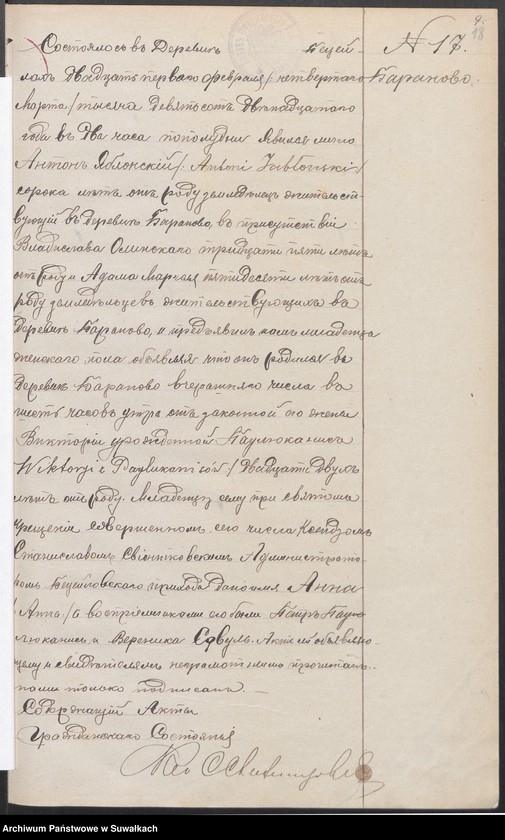 9.
18
N 17.
Бараново.
Состоялось въ Деревнѣ Бецей-
лахъ двадцать перваго февраля /: четвертаго
Марта / тысяча девятьсотъ двѣнадцатаго
года въ два часа пополудни. Явился лично
Антонъ Яблонскій /: Antoni Jabłonski :/
сорока лѣтъ отъ роду земледѣлецъ жительст-
вующій въ деревнѣ Бараново, въ присутствіи
Владислава Олинскаго тридцати пяти лѣтъ
отъ роду и Адама лѣтъ отъ
роду земледѣльцевъ жительствующихъ въ
деревнѣ Бараново, и предъявилъ намъ младенца
женскаго пола объявляя что онъ родился въ
деревнѣ Бараново вчерашняго числа въ
шесть часовъ утра отъ законной его жены
Викторіи урожденной
Wiktorji z двадцати двухъ
лѣтъ отъ роду. Младенцу сему при святомъ
крещеніи совершенномъ сего числа Ксендзомъ
Станиславомъ Администрато-
ромъ прихода дано имя Анна
/ Anna / а воспріемниками его были Петръ Пав-
люканисъ и Вероника Актъ сей объявляю-
щему и свидѣтелямъ неграмотнымъ прочитанъ
нами только подписанъ. —
Содержащій Акты
Гражданскаго Состоянія
Archiwum Państwowe w Suwałkach